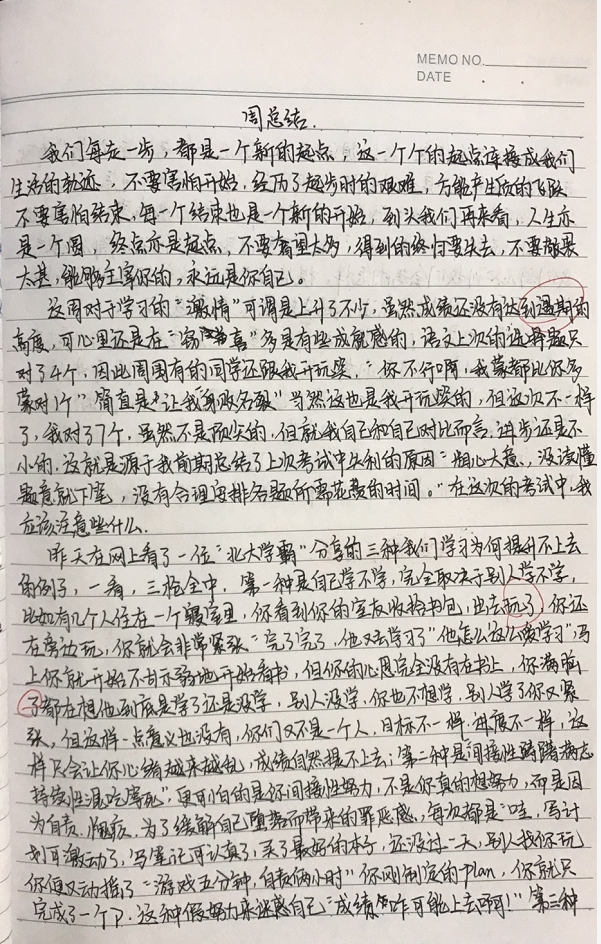 MEMO NO.
DATE . .
周总结.
我们每走一步，都是一个新的起点，这一个个的起点连接成我们
生活的轨迹，不要害怕开始，经历了起步时的艰难，方能产生质的飞跃
不要害怕结束，每一个结束也是一个新的开始，到头我们再来看，人生亦
是一个圆，终点亦是起点，不要奢望太多，得到的终归要失去，不要
太甚，能够主宰你的，永远是你自己。
这周对于学习的“激情”可谓是上升了不少，虽然成绩还没有达到遇期的
高度，可心里还是在“窃喜”多是有些成就感的，语文上次的选择题只
对了4个，因此周围有的同学还跟我开玩笑，“你不行啊，我蒙都比你多
蒙对1个”简直是“让我身败名裂”当然这也是我开玩笑的，但这次不一样
了，我对了7个，虽然不是顶尖的，但就我自己和自己对比而言，进步还是不
小的，这就是源于我前期总结了上次考试中失利的原因“粗心大意，没读懂
题意就下笔，没有合理安排各题所需花费的时间。”在这次的考试中，我
应该注意些什么.
昨天在网上看了一位“北大学霸”分享的三种我们学习为何提升不上去
的例子，一看，三枪全中，第一种是自己学不学，完全取决于别人学不学，
比如有几个人住在一个寝室里，你看到你的室友收拾书包，出去玩了，你还
在旁边玩，你就会非常紧张“完了完了，他又去学习了”他怎么这么爱学习”，马
上你就开始不甘示弱地开始看书，但你的心思完全没有在书上，你满脑
子都在想他到底是学了还是没学，别人没学，你也不想学，别人学了你又紧
张，但这样一点意义也没有，你们又不是一个人，目标不一样，进度不一样，这
样只会让你心绪越来越乱，成绩自然提不上去；第二种是“间接性踌躇满志
持续性混吃等死”，更可怕的是你间接性努力，不是你真的想努力，而是因
为自责，愧疚，为了缓解自己堕落而带来的罪恶感，每次都是“哇，写计
划可激动了，写笔记可认真了，买了最好的本子，还没过一天，别人找你玩
你便又动摇了“游戏五分钟，自责俩小时”你刚制定的plan，你就只
完成了一个p.这种假努力来迷惑自己“成绩咋可能上去啊！”第三种